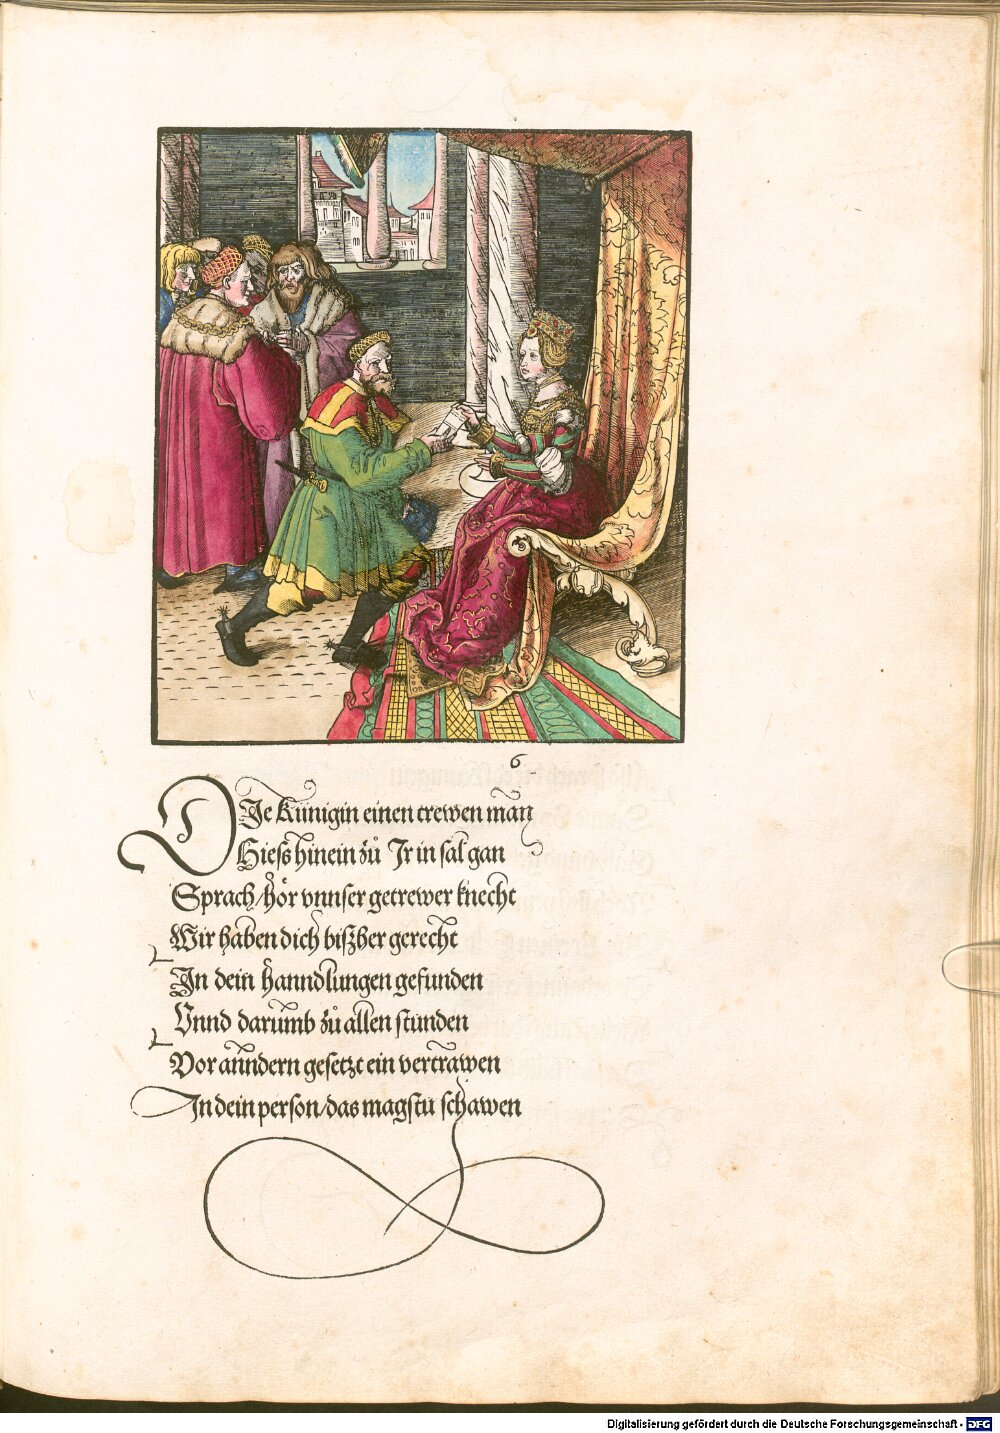 6
DIe Künigin einen trewen man
Hieſs hinein zů Ir in ſal gan
Sprach/hör vnnſer getrewer knecht
Wir haben dich biſzher gerecht
In dein hanndlungen gefunden
Vnnd darumb zů allen ſtunden
Vor anndern geſetzt ein vertrawen
In dein perſon/das magſtu ſchawen
Digitalisierung gefördert durch die Deutsche Forschungsgemeinschaft - DFG